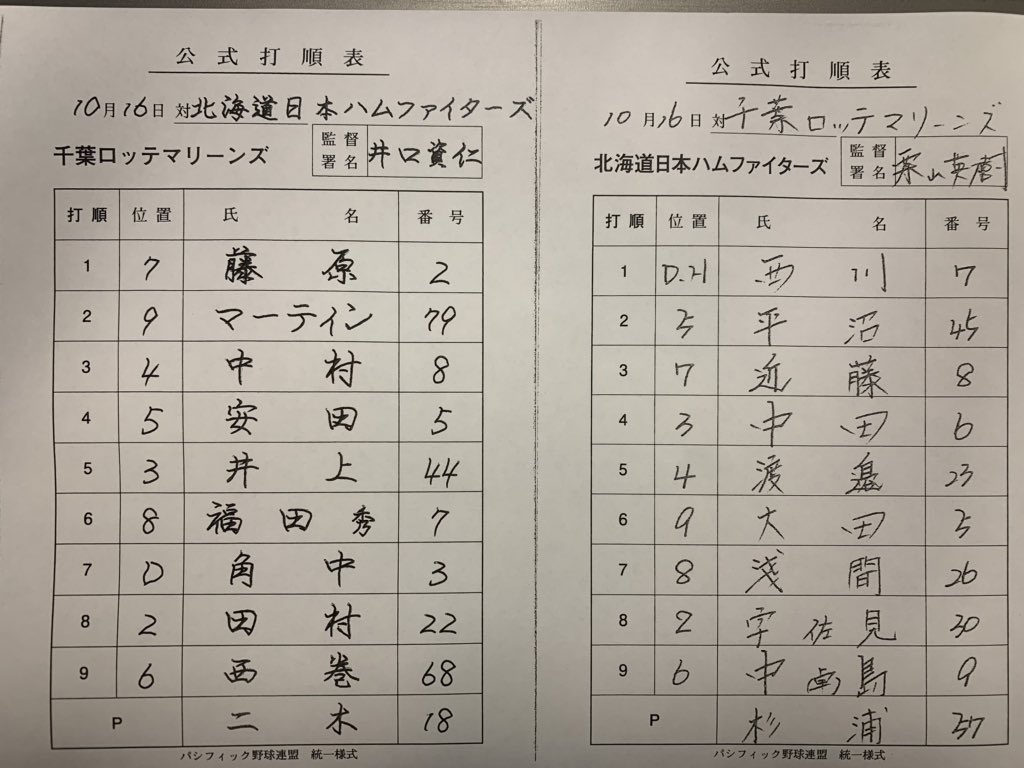 公式打順表
10月16日 対北海道日本ハムファイターズ
千葉ロッテマリーンズ 監督署名 井口資仁
打順 位置 氏名 番号
1 7 藤原 2
2 9 マーティン 79
3 4 中村 8
4 5 安田 5
5 3 井上 44
6 8 福田秀 7
7 D 角中 3
8 2 田村 22
9 6 西巻 68
P 二木 18
パシフィック野球連盟 統一様式
公式打順表
10月16日 対千葉ロッテマリーンズ
北海道日本ハムファイターズ 監督署名 栗山英樹
打順 位置 氏名 番号
1 D.H 西川 7
2 5 平沼 45
3 7 近藤 8
4 3 中田 6
5 4 渡邉 23
6 9 大田 5
7 8 浅間 26
8 2 宇佐見 30
9 6 中島卓 9
P 杉浦 57
パシフィック野球連盟 統一様式